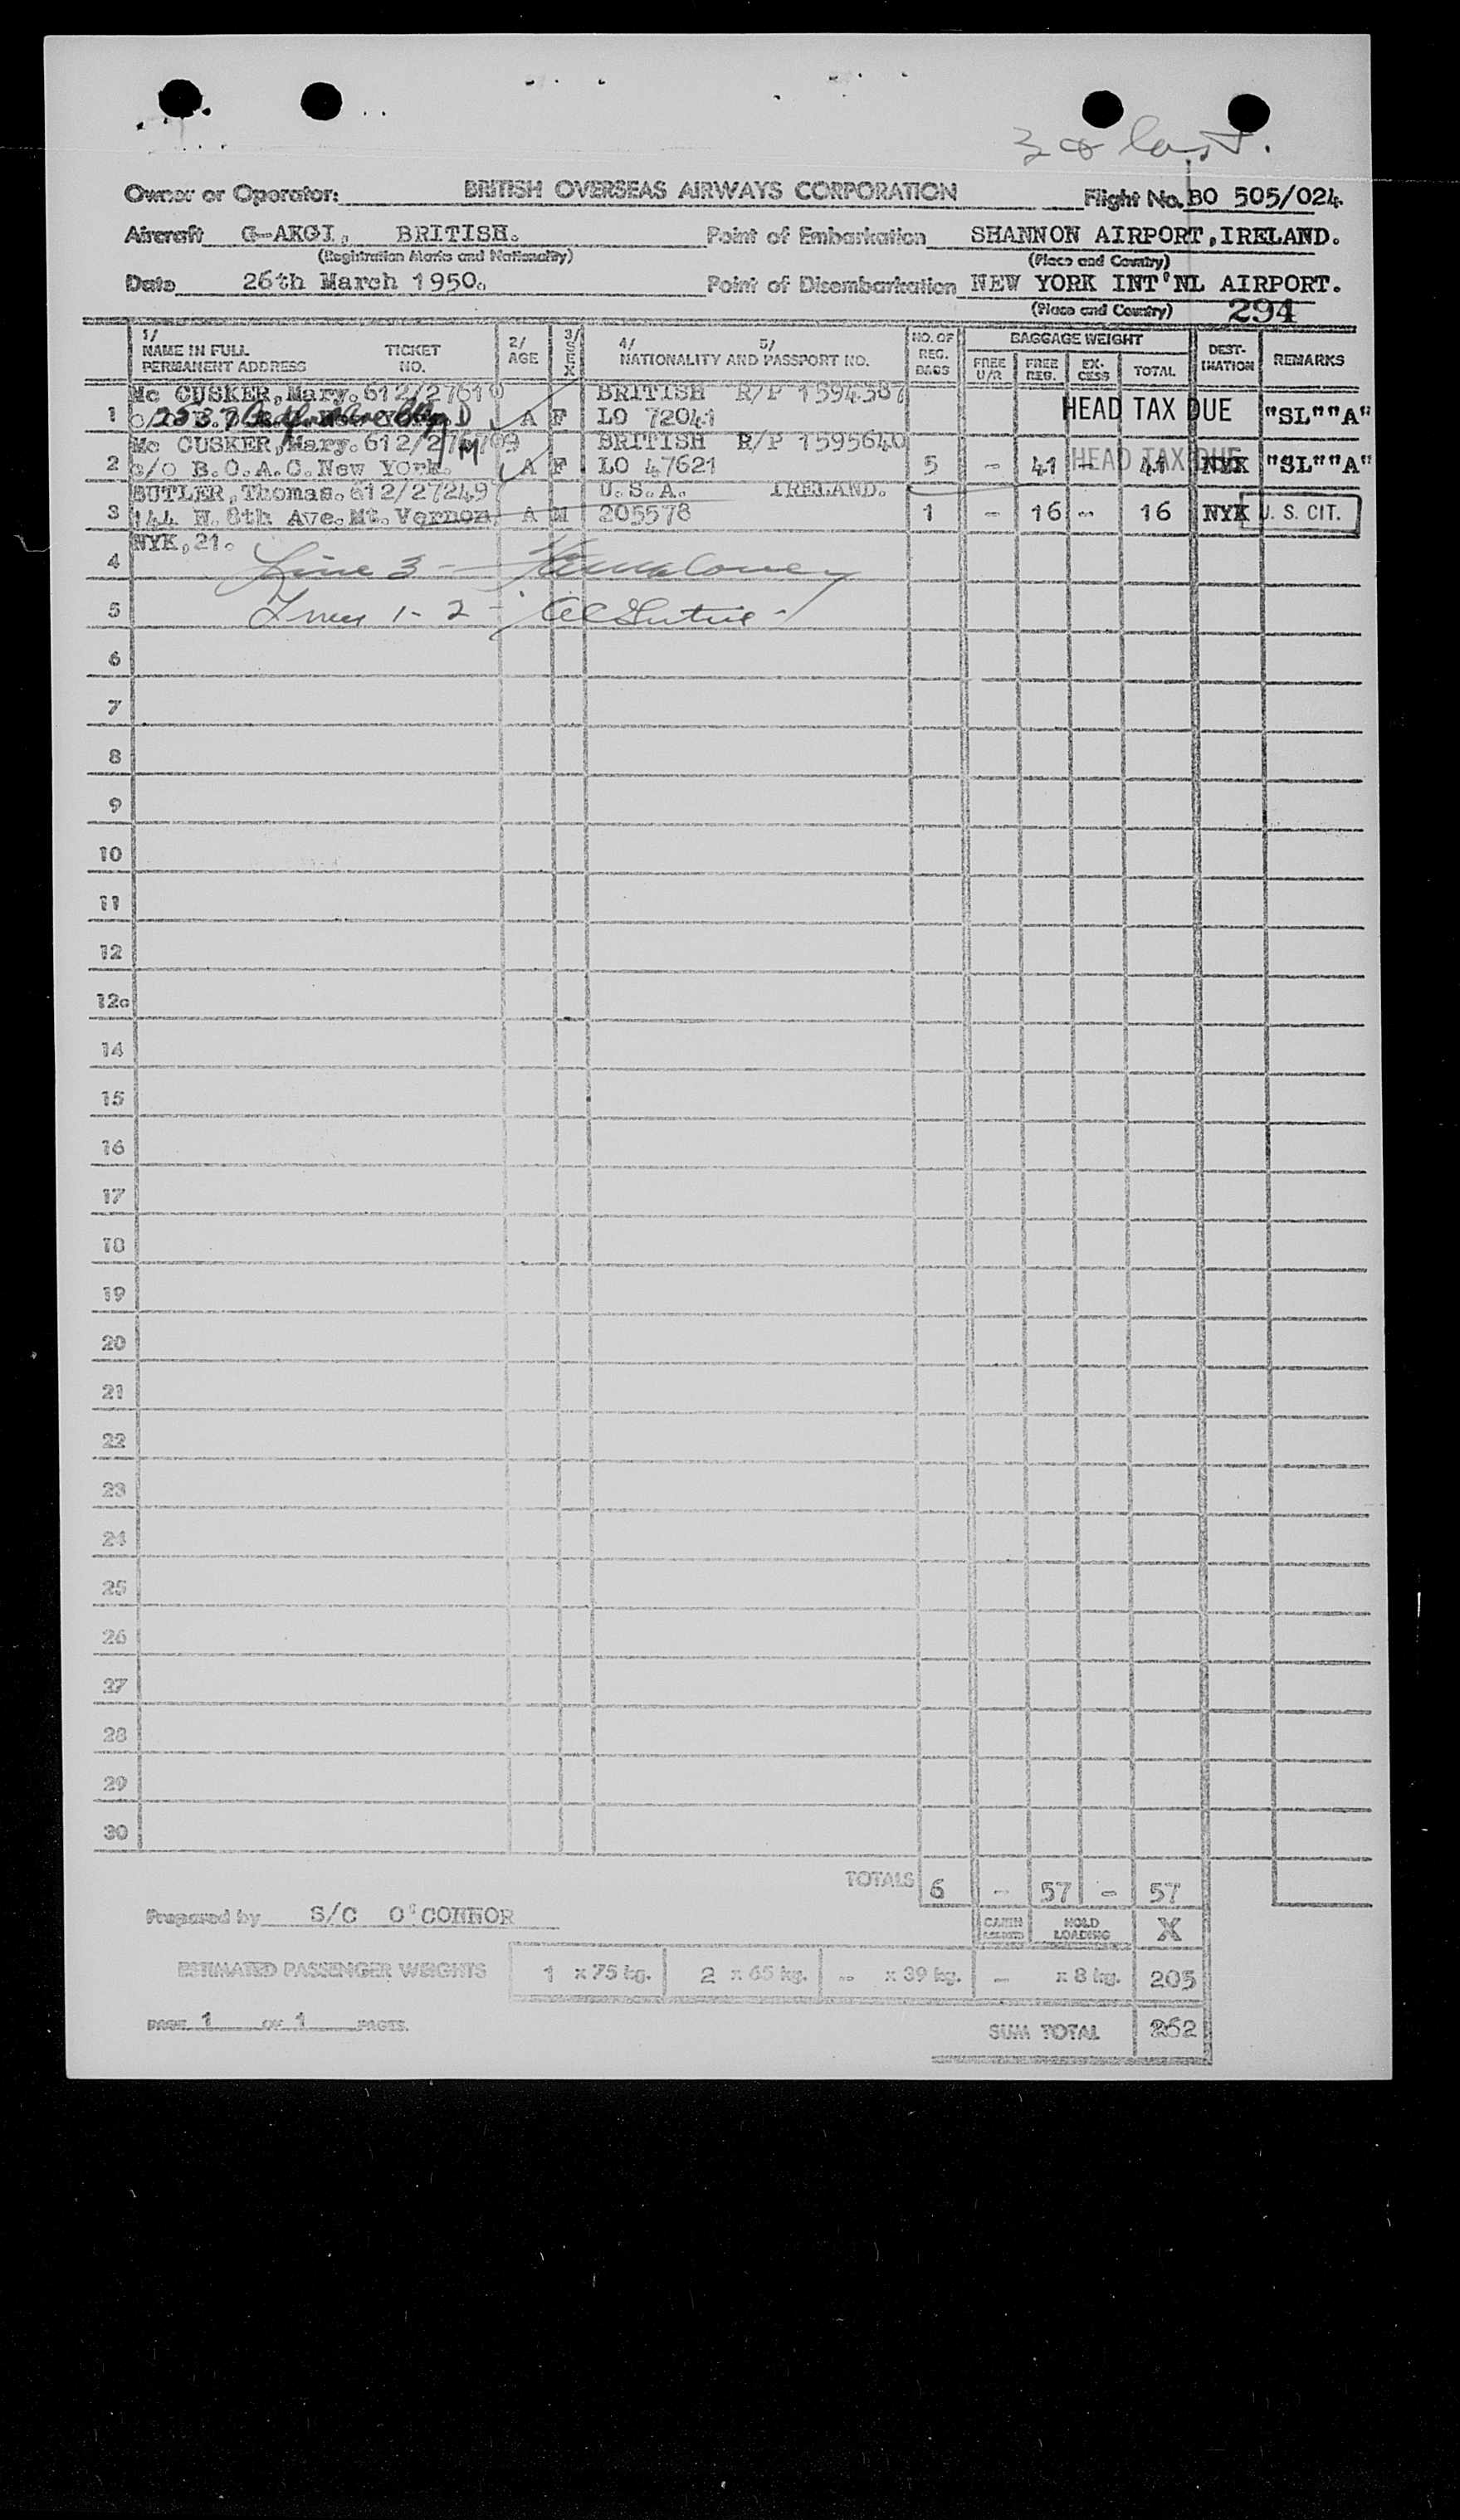 3 & last.
Owner or Operator: BRITISH OVERSEAS AIRWAYS CORPORATION Flight No. BO 505/024.
Aircraft G-AKGI, BRITISH. Point of Embarkation SHANNON AIRPORT, IRELAND.
(Registration Marks and Nationality) (Place and Country)
Date 26th March 1950. Point of Disembarkation NEW YORK INT'NL AIRPORT.
(Place and Country) 294
1/ NAME IN FULL PERMANENT ADDRESS TICKET NO. 2/ AGE 3/ SEX 4/ 5/ NATIONALITY AND PASSPORT NO. NO. OF REG. BAGS BAGGAGE WEIGHT FREE U/R FREE REG. EXCESS TOTAL DESTINATION REMARKS
Mc CUSKER, Mary. 612/27610 BRITISH R/P 1594587
1 A F LO 72041 HEAD TAX DUE "SL" "A"
Mc CUSKER, Mary. 612/2 BRITISH R/P 1595640
2 c/o B.O.A.C. New York. A F LO 47621 5 - 41 - 41 HEAD TAX DUE NYK "SL" "A"
BUTLER, Thomas. 612/27249 U.S.A. IRELAND.
3 144 W. 8th Ave. Mt. Vernon, A M 205578 1 - 16 - 16 NYK U. S. CIT.
NYK, 21.
4 Line 3 -
5 Lines 1 - 2 -
6
7
8
9
10
11
12
12a
14
15
16
17
18
19
20
21
22
23
24
25
26
27
28
29
30
TOTALS 6 - 57 - 57
Prepared by S/C O'CONNOR CABIN HOLD LOADING X
ESTIMATED PASSENGER WEIGHTS 1 x 75 kg. 2 x 65 kg. -- x 39 kg. - x 8 kg. 205
PAGE 1 OF 1 PAGES. SUM TOTAL 262